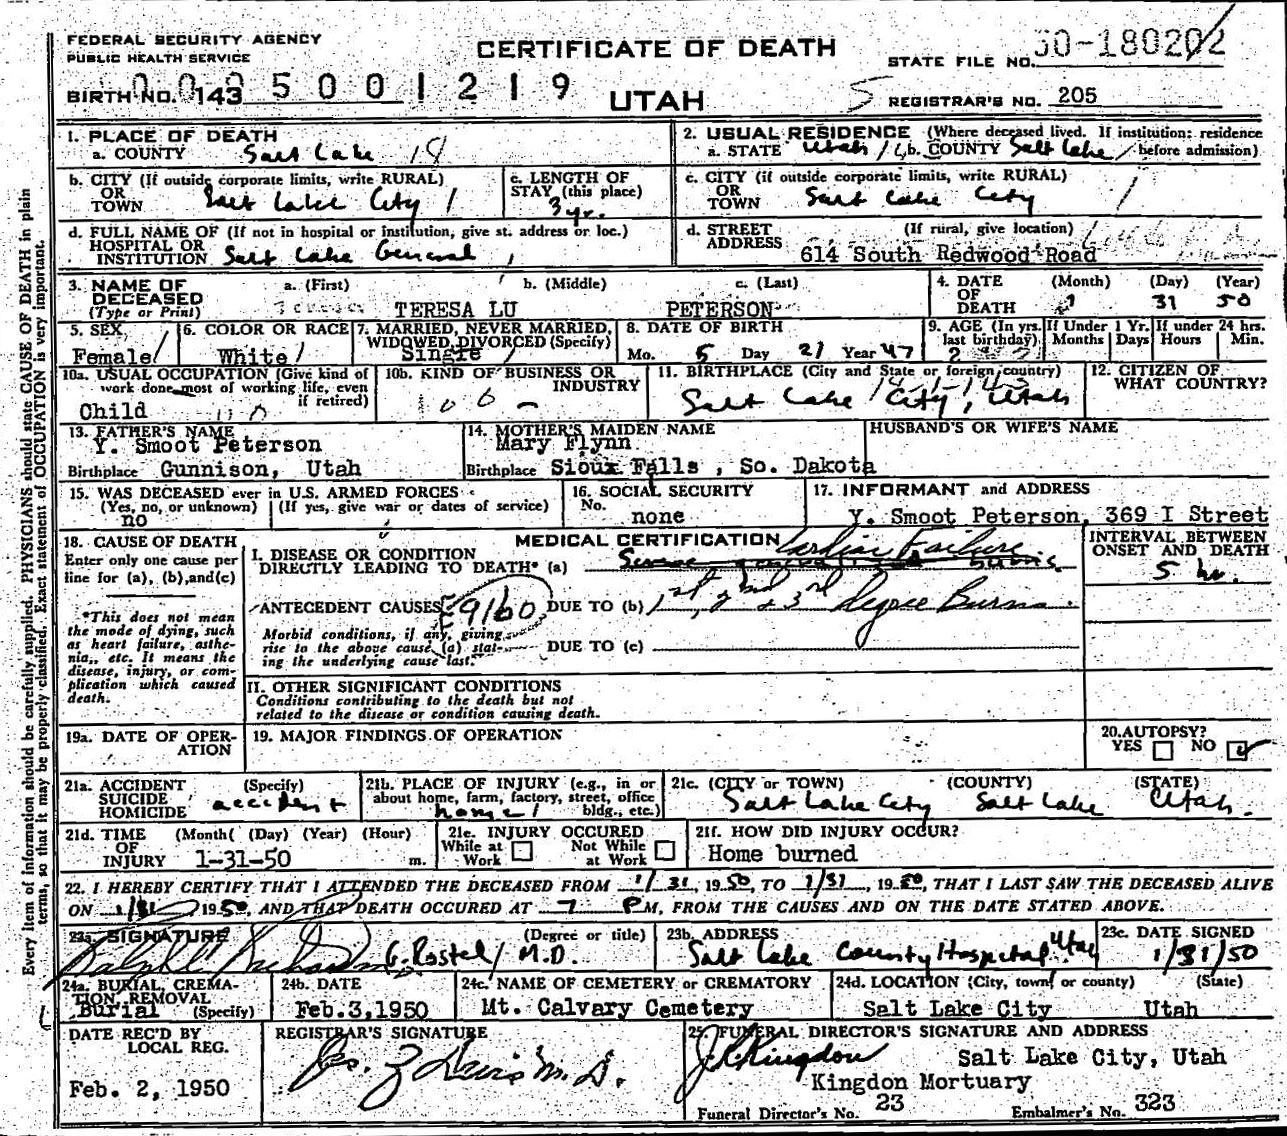 FEDERAL SECURITY AGENCY
PUBLIC HEALTH SERVICE
CERTIFICATE OF DEATH
STATE FILE NO. 50-180202
BIRTH NO. 143
0005001219
UTAH
REGISTRAR'S NO. 205
1. PLACE OF DEATH
a. COUNTY Salt Lake 18
2. USUAL RESIDENCE (Where deceased lived. If institution: residence before admission)
a. STATE Utah b. COUNTY Salt Lake
b. CITY (If outside corporate limits, write RURAL)
OR TOWN Salt Lake City
c. LENGTH OF STAY (this place)
3 yr.
c. CITY (if outside corporate limits, write RURAL)
OR TOWN Salt Lake City
d. FULL NAME OF (If not in hospital or institution, give st. address or loc.)
HOSPITAL OR INSTITUTION Salt Lake General
d. STREET ADDRESS (If rural, give location)
614 South Redwood Road
3. NAME OF DECEASED (Type or Print)
a. (First) b. (Middle) c. (Last)
TERESA LU PETERSON
4. DATE OF DEATH (Month) (Day) (Year)
1 31 50
5. SEX
Female
6. COLOR OR RACE
White
7. MARRIED, NEVER MARRIED, WIDOWED, DIVORCED (Specify)
Single
8. DATE OF BIRTH
Mo. 5 Day 21 Year 47
9. AGE (In yrs. last birthday)
2
If Under 1 Yr. Months Days
If under 24 hrs. Hours Min.
10a. USUAL OCCUPATION (Give kind of work done most of working life, even if retired)
Child
10b. KIND OF BUSINESS OR INDUSTRY
11. BIRTHPLACE (City and State or foreign country)
Salt Lake City, Utah
12. CITIZEN OF WHAT COUNTRY?
13. FATHER'S NAME
Y. Smoot Peterson
Birthplace Gunnison, Utah
14. MOTHER'S MAIDEN NAME
Mary Flynn
Birthplace Sioux Falls, So. Dakota
HUSBAND'S OR WIFE'S NAME
15. WAS DECEASED ever in U.S. ARMED FORCES
(Yes, no, or unknown) (If yes, give war or dates of service)
no
16. SOCIAL SECURITY No.
none
17. INFORMANT and ADDRESS
Y. Smoot Peterson, 369 I Street
18. CAUSE OF DEATH
Enter only one cause per line for (a), (b), and (c)
*This does not mean the mode of dying, such as heart failure, asthenia, etc. It means the disease, injury, or complication which caused death.
MEDICAL CERTIFICATION
I. DISEASE OR CONDITION DIRECTLY LEADING TO DEATH* (a) Cardiac Failure
Severe burns
ANTECEDENT CAUSES 9160 DUE TO (b) 1st, 2nd & 3rd Degree Burns.
Morbid conditions, if any, giving rise to the above cause (a) stating the underlying cause last.
DUE TO (c)
INTERVAL BETWEEN ONSET AND DEATH
5 hr.
II. OTHER SIGNIFICANT CONDITIONS
Conditions contributing to the death but not related to the disease or condition causing death.
19a. DATE OF OPERATION
19. MAJOR FINDINGS OF OPERATION
20. AUTOPSY?
YES NO
21a. ACCIDENT SUICIDE HOMICIDE (Specify)
accident
21b. PLACE OF INJURY (e.g., in or about home, farm, factory, street, office bldg., etc.)
home
21c. (CITY or TOWN) (COUNTY) (STATE)
Salt Lake City Salt Lake Utah.
21d. TIME OF INJURY (Month) (Day) (Year) (Hour)
1-31-50 m.
21e. INJURY OCCURED
While at Work Not While at Work
21f. HOW DID INJURY OCCUR?
Home burned
22. I HEREBY CERTIFY THAT I ATTENDED THE DECEASED FROM 1/31, 1950, TO 1/31, 1950, THAT I LAST SAW THE DECEASED ALIVE
ON 1/31 1950, AND THAT DEATH OCCURED AT 7 PM, FROM THE CAUSES AND ON THE DATE STATED ABOVE.
23a. SIGNATURE (Degree or title)
G. Rostel M.D.
23b. ADDRESS
Salt Lake County Hospital Utah
23c. DATE SIGNED
1/31/50
24a. BURIAL, CREMATION, REMOVAL (Specify)
Burial
24b. DATE
Feb.3,1950
24c. NAME OF CEMETERY or CREMATORY
Mt. Calvary Cemetery
24d. LOCATION (City, town, or county) (State)
Salt Lake City Utah
DATE REC'D BY LOCAL REG.
Feb. 2, 1950
REGISTRAR'S SIGNATURE
25. FUNERAL DIRECTOR'S SIGNATURE AND ADDRESS
Kingdon Salt Lake City, Utah
Kingdon Mortuary
Funeral Director's No. 23 Embalmer's No. 323
Every item of information should be carefully supplied. PHYSICIANS should state CAUSE OF DEATH in plain
terms, so that it may be properly classified. Exact statement of OCCUPATION is very important.